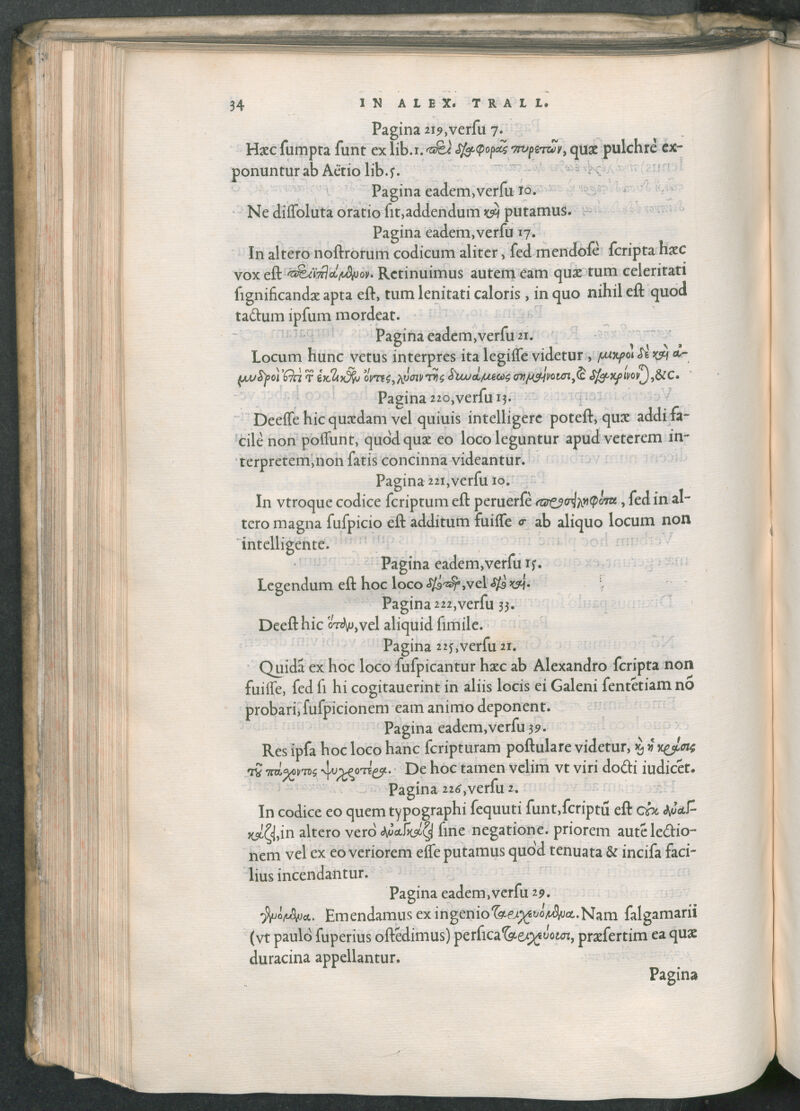 34 IN ALEX. TRALL.
Pagina 219, versu 7.
Hæc sumpta sunt ex lib. 1. περὶ διαφορᾶς πυρετῶν, quæ pulchrè ex-
ponuntur ab Aëtio lib. 5.
Pagina eadem, versu 10.
Ne dissoluta oratio sit, addendum καὶ putamus.
Pagina eadem, versu 17.
In altero nostrorum codicum aliter, sed mendosè scripta hæc
vox est. Retinuimus autem eam quæ tum celeritati
significandæ apta est, tum lenitati caloris, in quo nihil est quod
tactum ipsum mordeat.
Pagina eadem, versu 21.
Locum hunc vetus interpres ita legisse videtur, μικροὶ δὲ καὶ ἀ-
μυδροὶ ἐπὶ τ ὄντες, λύσιν τῆς δυνάμεως σημαίνουσι, &c.
Pagina 220, versu 13.
Deesse hic quædam vel quiuis intelligere potest, quæ addi fa-
cilè non possunt, quòd quæ eo loco leguntur apud veterem in-
terpretem, non satis concinna videantur.
Pagina 221, versu 10.
In vtroque codice scriptum est peruersè, sed in al-
tero magna suspicio est additum fuisse σ ab aliquo locum non
intelligente.
Pagina eadem, versu 15.
Legendum est hoc loco διόπερ, vel διὸ καὶ.
Pagina 222, versu 33.
Deest hic ὅταν, vel aliquid simile.
Pagina 225, versu 21.
Quidã ex hoc loco suspicantur hæc ab Alexandro scripta non
fuisse, sed si hi cogitauerint in aliis locis ei Galeni sentẽtiam nõ
probari, suspicionem eam animo deponent.
Pagina eadem, versu 39.
Res ipsa hoc loco hanc scripturam postulare videtur, καὶ ἡ κρᾶσις
τοῦ πάσχοντος ψυχροτέρα. De hoc tamen velim vt viri docti iudicẽt.
Pagina 226, versu 2.
In codice eo quem typographi sequuti sunt, scriptũ est οὐκ
in altero verò sine negatione. priorem autẽ lectio-
nem vel ex eo veriorem esse putamus quòd tenuata & incisa faci-
lius incendantur.
Pagina eadem, versu 29.
γενόμενα. Emendamus ex ingenio ταριχευόμενα. Nam salgamarii
(vt paulò superius ostẽdimus) persica ταριχεύουσι, præsertim ea quæ
duracina appellantur.
Pagina